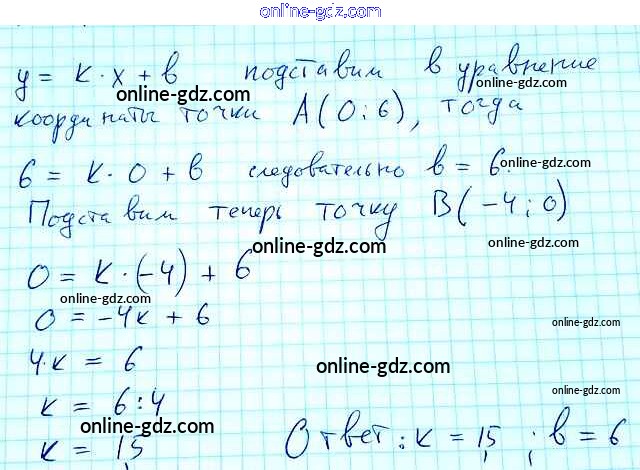 online-gdz.com
y = k · x + b подставим в уравнение
online-gdz.com
координаты точки A(0; 6), тогда
online-gdz.com
6 = k · 0 + b следовательно b = 6.
online-gdz.com
online-gdz.com
Подставим теперь точку B(-4; 0)
online-gdz.com
0 = k · (-4) + 6
online-gdz.com
0 = -4k + 6
online-gdz.com
4·k = 6
online-gdz.com
k = 6:4
online-gdz.com
online-gdz.com
k = 1,5 Ответ: k = 1,5 ; b = 6